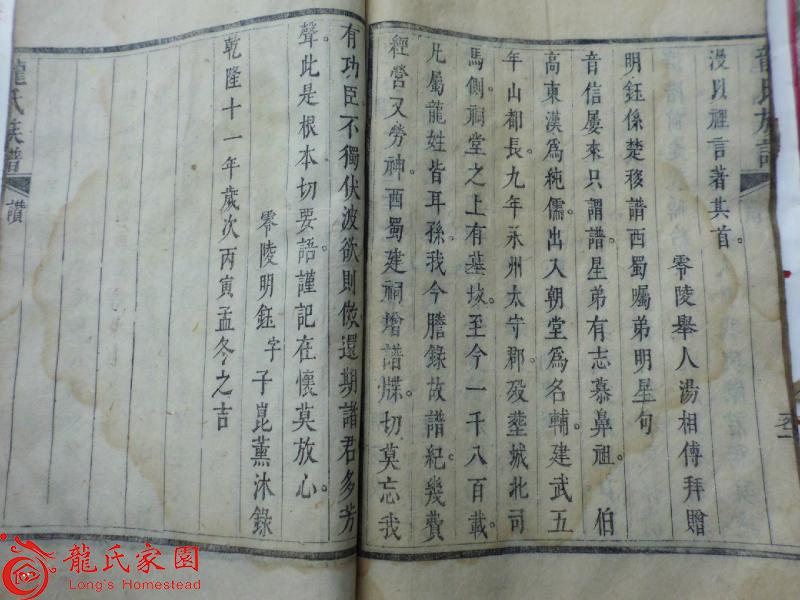 龍氏族譜
漫以裡言著其首。
零陵舉人湯相傅拜贈
明鈺係楚移譜西蜀囑弟明星句
音信屢來只謂譜。星弟有志慕鼻祖。伯
高東漢為純儒。出入朝堂為名輔。建武五
年山都長。九年永州太守郡。歿塟城北司
馬側。祠堂之上有墓坺。至今一千八百載。
凡屬龍姓皆耳孫。我今謄錄故譜紀。幾費
經營又勞神。西蜀建祠增譜牒。切莫忘我
有功臣。不獨伏波欲則傚。還期諸君多芳
聲。此是根本切要語。謹記在懷莫放心。
零陵明鈺字子崑薰沐錄
乾隆十一年歲次丙寅孟冬之吉
龍氏族譜
讃
龍氏家園
Long's Homestead